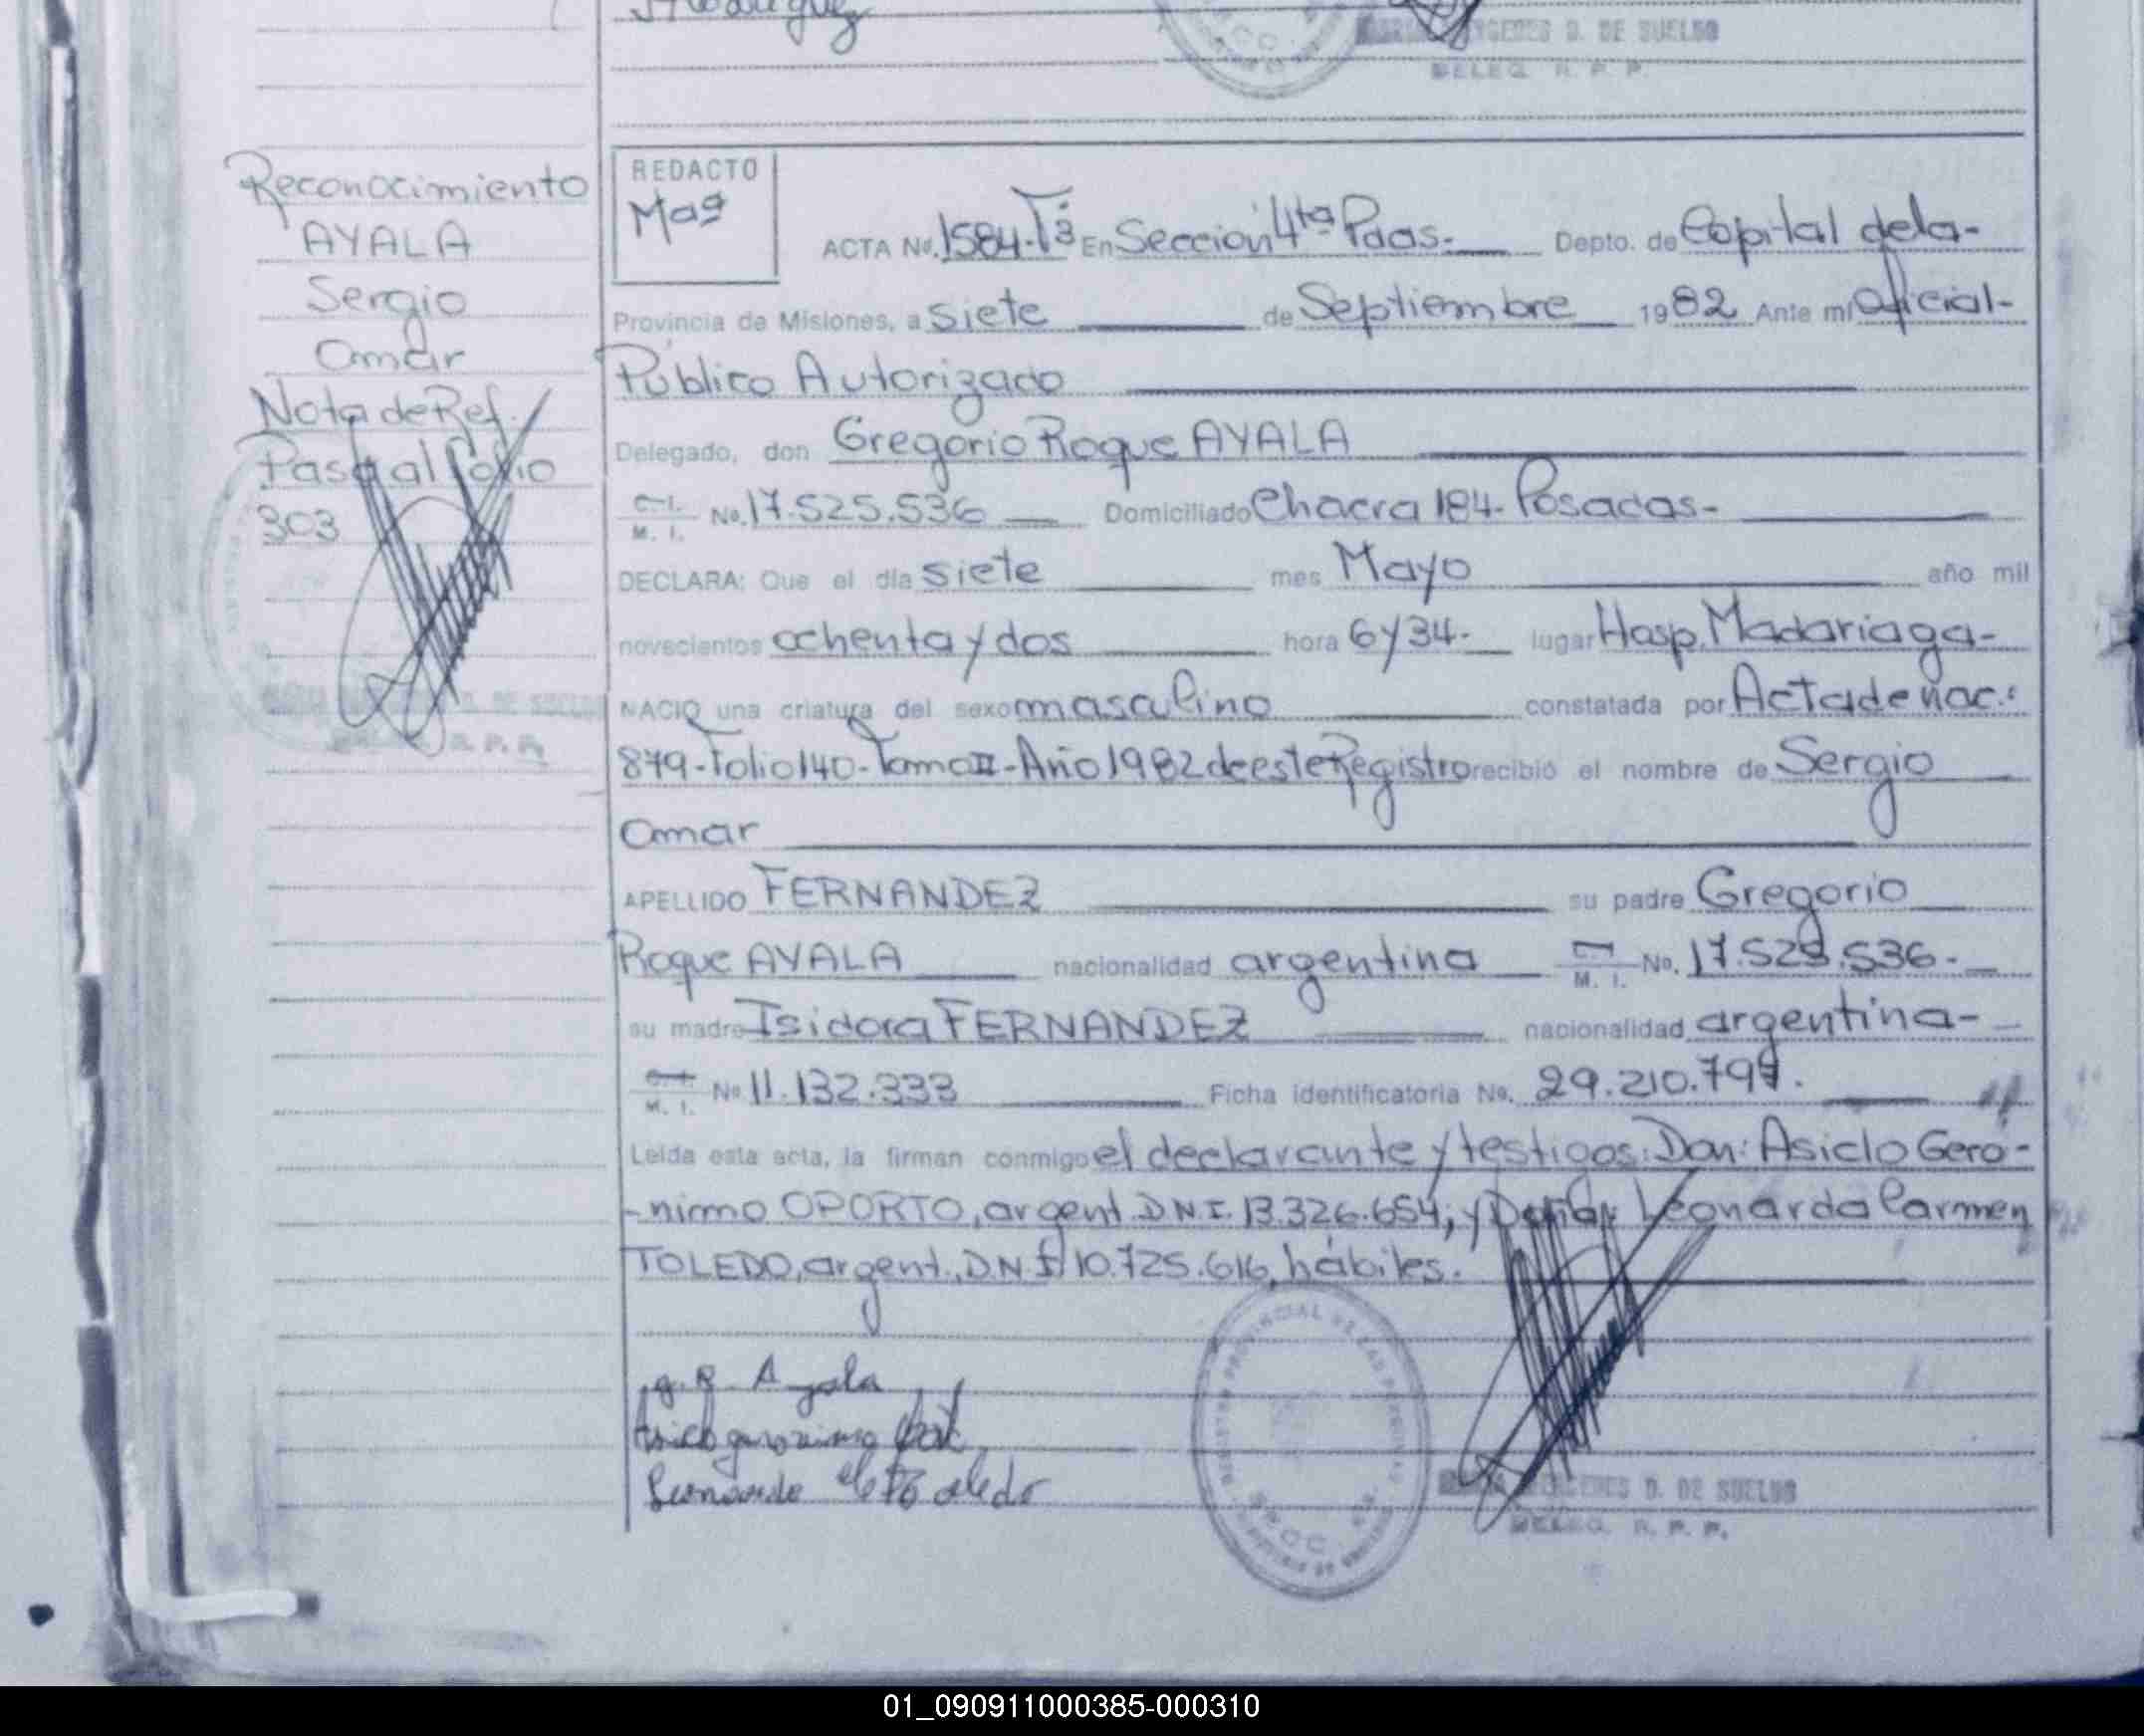 D. DE SUELDO
DELEG. R. P. P.
Reconocimiento
AYALA
Sergio
Omar
Nota de Ref.
Pasa al folio
303
D. DE SUELDO
R. P. P.
REDACTO
Mag
ACTA No. 1584-Tº3 En Sección 4ta Pdas.- Depto. de Capital de la-
Provincia de Misiones, a siete de Septiembre 1982 Ante mi Oficial-
Público Autorizado
Delegado, don Gregorio Roque AYALA
C.I. M. I. No. 17.525.536 Domiciliado Chacra 184- Posadas-
DECLARA: Que el día siete mes Mayo año mil
novecientos ochenta y dos hora 6 y 34- lugar Hosp. Madariaga-
NACIO una criatura del sexo masculino constatada por Acta de nac.:
879-Folio 140-Tomo II-Año 1982 de este Registro recibió el nombre de Sergio
Omar
APELLIDO FERNANDEZ su padre Gregorio
Roque AYALA nacionalidad argentina C.I. M. I. No. 17.525.536.-
su madre Isidora FERNANDEZ nacionalidad argentina-
C.I. M. I. No 11.132.333 Ficha identificatoria No. 29.210.797.
Leída esta acta, la firman conmigo el declarante y testigos: Don: Asiclo Gero-
-nimo OPORTO, argent. D.N.I. 13.326.654; y Doña: Leonarda Carmen
TOLEDO, argent., D.N.I 10.725.616, hábiles.
g. R Ayala
REGISTRO PROVINCIAL DE LAS PERSONAS
D. DE SUELDO
DELEG. R. P. P.
01_090911000385-000310